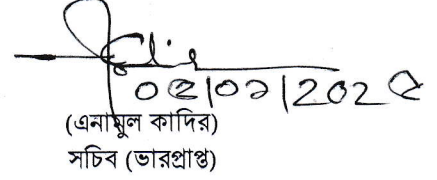 ০৫|০১|২০২৫
(এনামুল কাদির)
সচিব (ভারপ্রাপ্ত)